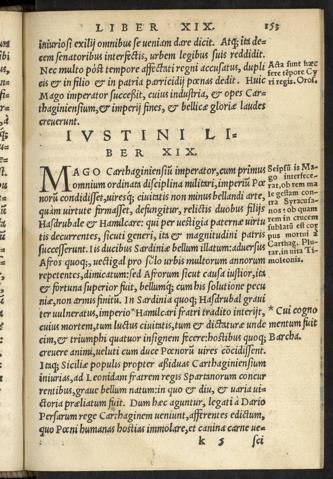 LIBER XIX. 153
iniuriosi exilij omnibus se ueniam dare dicit. Atq; ita de-
cem senatoribus interfectis, urbem legibus suis reddidit.
Nec multo pòst tempore affectati regni accusatus, dupli
cis & in filio & in patria parricidij pœnas dedit. Huic
Mago imperator successit, cuius industria, & opes Car-
thaginiensium, & imperij fines, & bellicæ gloriæ laudes
creuerunt.
Acta sunt hæc
fere tẽpore Cy
ri regis, Oros.
IVSTINI LI-
BER XIX.
MAGO Carthaginiensiũ imperator, cum primus
omnium ordinata disciplina militari, imperiũ Pœ
norũ condidisset, uiresq; ciuitatis non minus bellandi arte,
quàm uirtute firmasset, defungitur, relictis duobus filijs
Hasdrubale & Hamilcare: qui per uestigia paternæ uirtu
tis decurrentes, sicuti generi, ita & magnitudini patris
successerunt. Iis ducibus Sardiniæ bellum illatum: aduersus
Afros quoq;, uectigal pro solo urbis multorum annorum
repetentes, dimicatum: sed Afrorum sicut causa iustior, ita
& fortuna superior fuit, bellumq; cum his solutione pecu
niæ, non armis finitũ. In Sardinia quoq; Hasdrubal graui
ter uulneratus, imperio* Hamilcari fratri tradito interijt,
cuius mortem, tum luctus ciuitatis, tum & dictaturæ unde
cim, & triumphi quatuor insignem fecere: hostibus quoq;
creuere animi, ueluti cum duce Pœnorũ uires cõcidissent.
Itaq; Siciliæ populis propter assiduas Carthaginensium
iniurias, ad Leonidam fratrem regis Spartanorum concur
rentibus, graue bellum natum: in quo & diu, & uaria ui-
ctoria præliatum fuit. Dum hæc aguntur, legati à Dario
Persarum rege Carthaginem ueniunt, afferentes edictum,
quo Pœni humanas hostias immolare, et canina carne ue-
Seipsũ is Ma
go interfece-
rat, ob rem ma
le gestam con-
tra Syracusa-
nos: ob quam
rem in crucem
sublatũ est cor
pus mortui à
Carthag. Plu-
tar. in uita Ti-
moleonis.
* Cui cogno
mentum fuit
Barcha.
k 5 sci